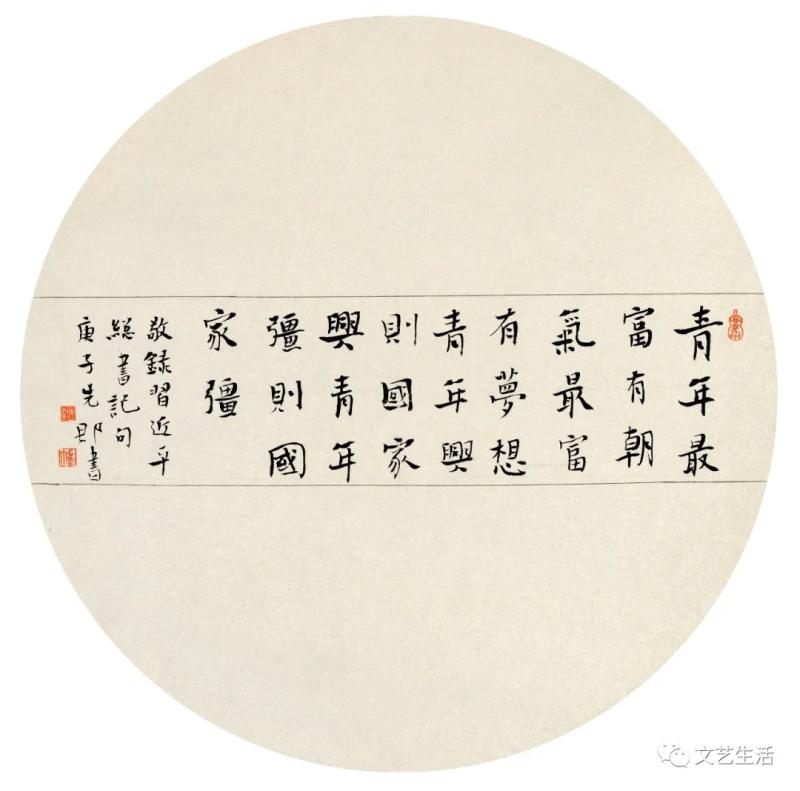 青年最
富有朝
氣最富
有夢想
青年興
則國家
興青年
彊則國
家彊
敬録習近平
總書記句
庚子先郎書
文艺生活